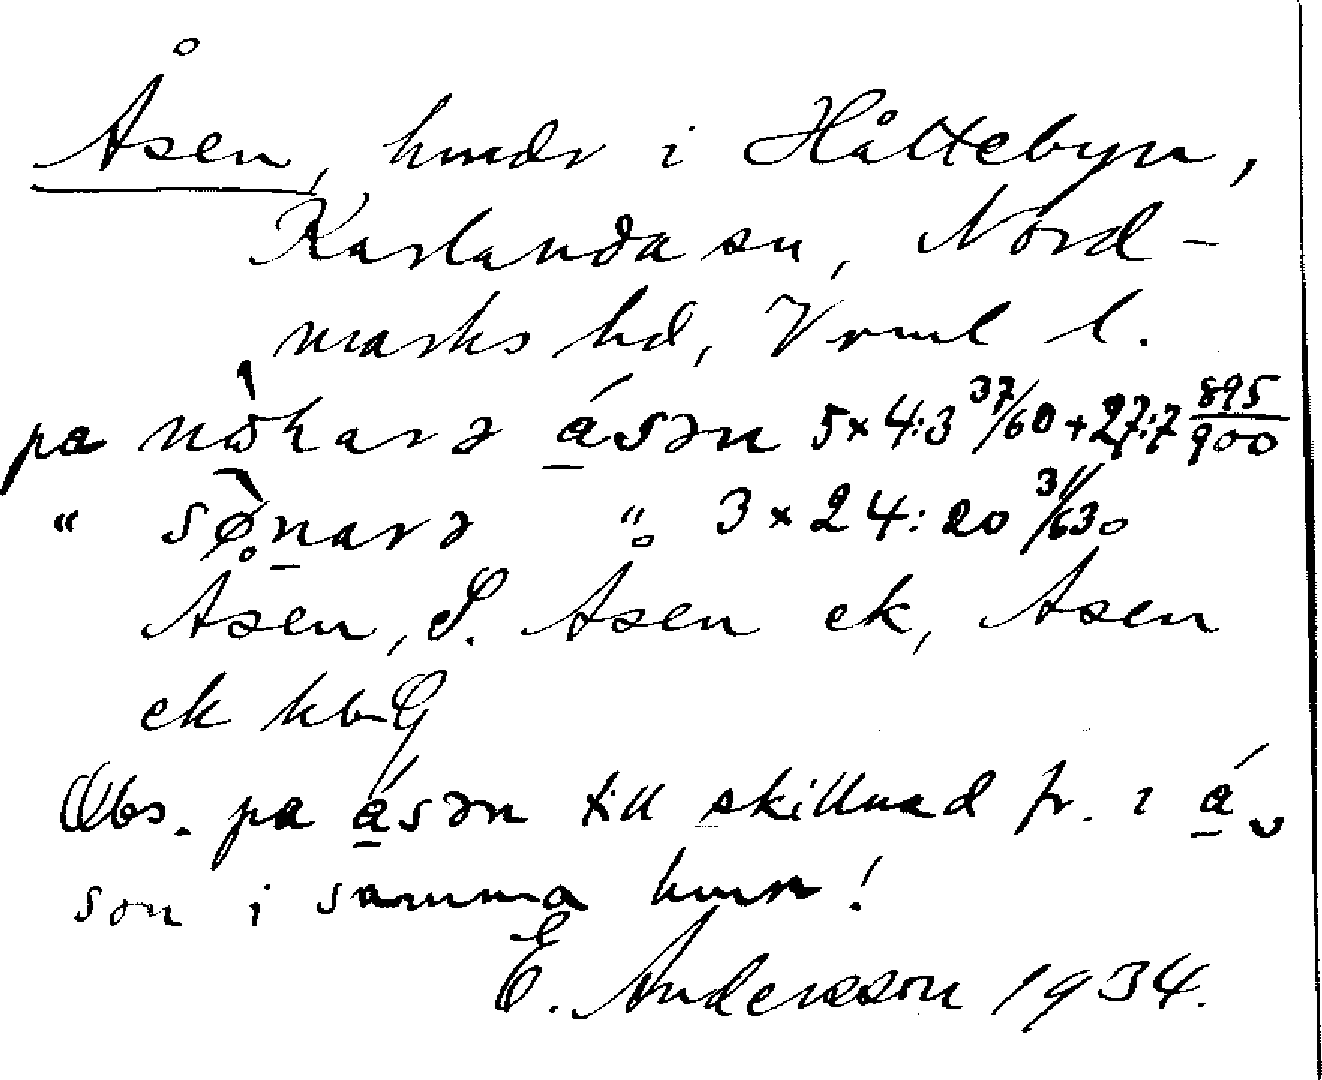 Åsen, hmdr i Håltebyn,
Karlanda sn, Nord-
marks hd, Vrml l.
pa nǒkarə ása̱n 5x4:3 37/60+27:7 895/900
" sø̀narə " 3x24:20 31/630
Åsen, S. Åsen ek, Åsen
ek kbG
Obs. pa ásən till skillnad fr. i á
son i samma hmn!
E. Andersson 1934.